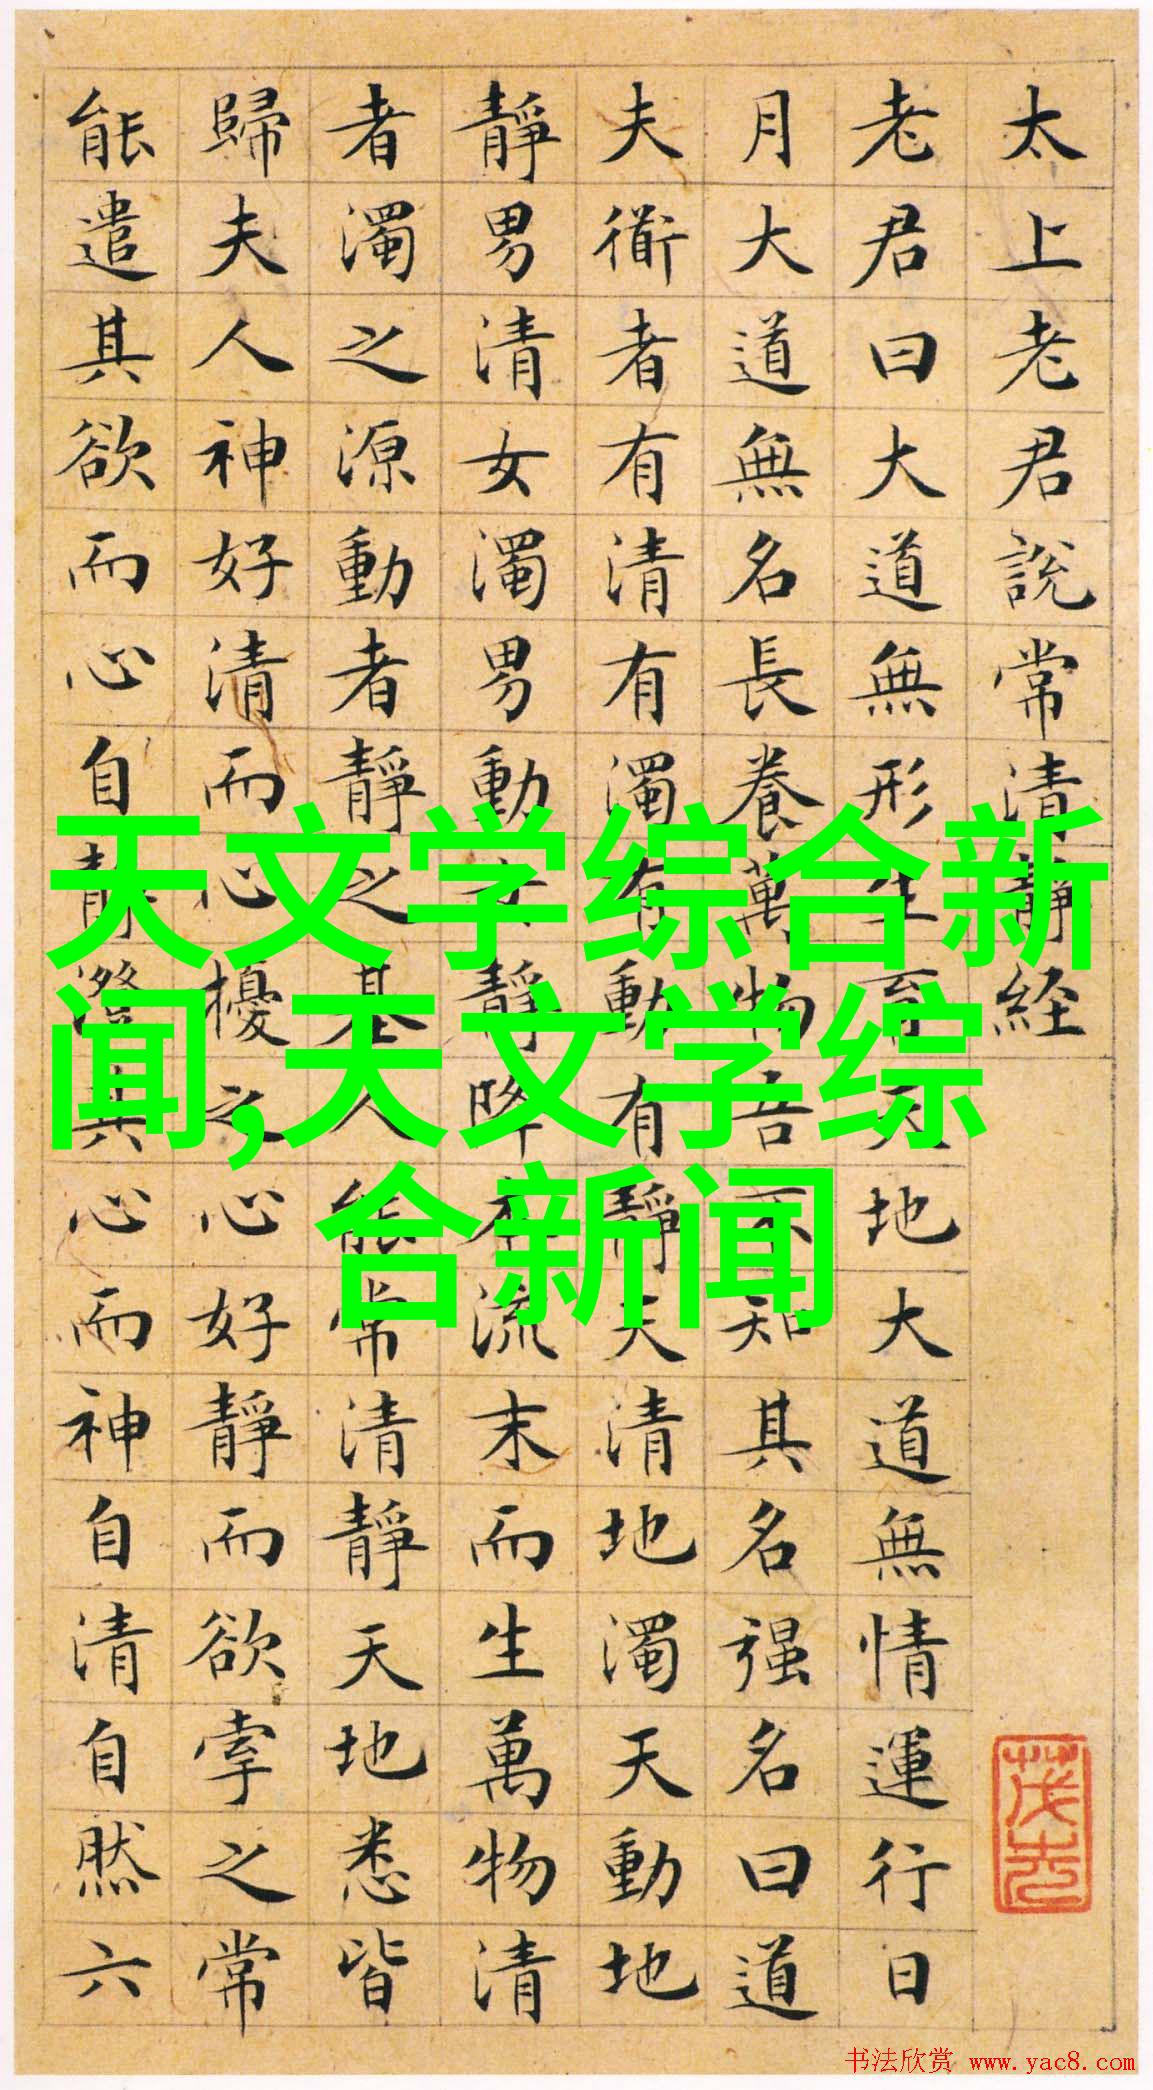 太上老君說常清靜経
老君曰大道無形生育天地大道無情運行日
月大道無名長養萬物吾不知其名强名曰道
夫衜者有清有濁有動有靜天清地濁天動地
靜男清女濁男動女靜降本流末而生萬物清
者濁之源動者靜之基人能常清靜天地悉皆
歸夫人神好清而心擾之心好靜而欲牽之常
能遣其欲而心自靜澄其心而神自清自然六
天文学综合新
闻,天文学综
合新闻
书法欣赏 www.yac8.com